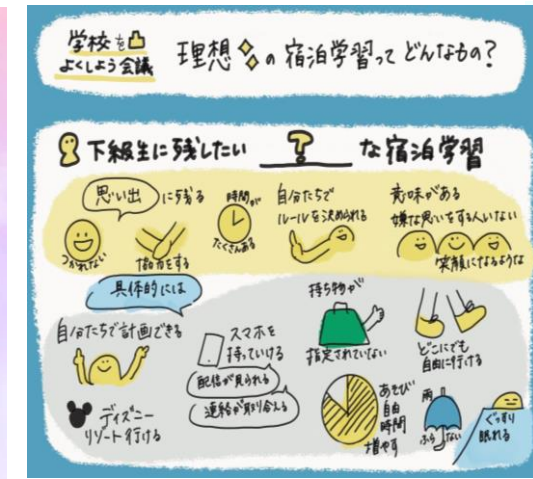 学校を
よくしよう会議
理想の宿泊学習ってどんなもの?
下級生に残したい ? な宿泊学習
思い出に残る
つかれない
協力をする
時間が
たくさんある
自分たちで
ルールを決められる
意味がある
嫌な思いをする人いない
笑顔になるような
具体的には
自分たちで計画できる
ディズニー
リゾート行ける
スマホを
持っていける
配信が見られる
連絡が取り合える
持ち物が
指定されていない
どこにでも
自由に行ける
あそび
自由
時間
増やす
雨
ふらない
ぐっすり
眠れる